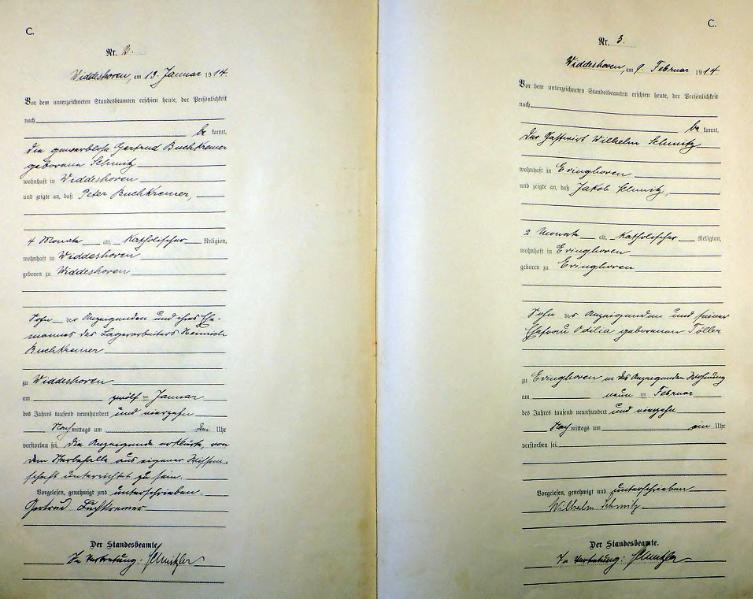 C.
Nr. 2.
Widdeshoven, am 13. Januar 1914.
Vor dem unterzeichneten Standesbeamten erschien heute, der Persönlichkeit
nach
be kannt,
die gewerblose Gertrud Buchkremer
geborene Schmitz
wohnhaft in Widdeshoven
und zeigte an, daß Peter Buchkremer,
4 Monate alt, Katholischer Religion,
wohnhaft in Widdeshoven
geboren zu Widdeshoven
Sohn der Anzeigenden und ihres Ehe-
mannes des Lagerarbeiters Heinrich
Buchkremer
zu Widdeshoven
am zwölf ten Januar
des Jahres tausend neunhundert und vierzehn
Nach mittags um Uhr
verstorben sei. Die Anzeigende erklärte, von
dem Sterbefalle aus eigener Wissen-
schaft unterrichtet zu sein.
Vorgelesen, genehmigt und unterschrieben.
Gertrud Buchkremer
Der Standesbeamte.
In Vertretung:
C.
Nr. 3.
Widdeshoven, am 9 Februar 1914.
Vor dem unterzeichneten Standesbeamten erschien heute, der Persönlichkeit
nach
be kannt,
der Gastwirt Wilhelm Schmitz
wohnhaft in Evinghoven
und zeigte an, daß Jakob Schmitz,
2 Monate alt, Katholischer Religion,
wohnhaft in Evinghoven
geboren zu Evinghoven
Sohn des Anzeigenden und seiner
Ehefrau Odilia geborenen Töller
zu Evinghoven in des Anzeigenden Wohnung
am neun ten Februar
des Jahres tausend neunhundert und vierzehn
Nach mittags um ein Uhr
verstorben sei.
Vorgelesen, genehmigt und unterschrieben
Wilhelm Schmitz
Der Standesbeamte.
In Vertretung: